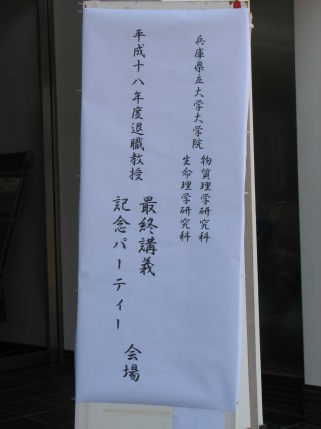 兵庫県立大学大学院
物質理学研究科
生命理学研究科
平成十八年度退職教授
最終講義
記念パーティー
会場